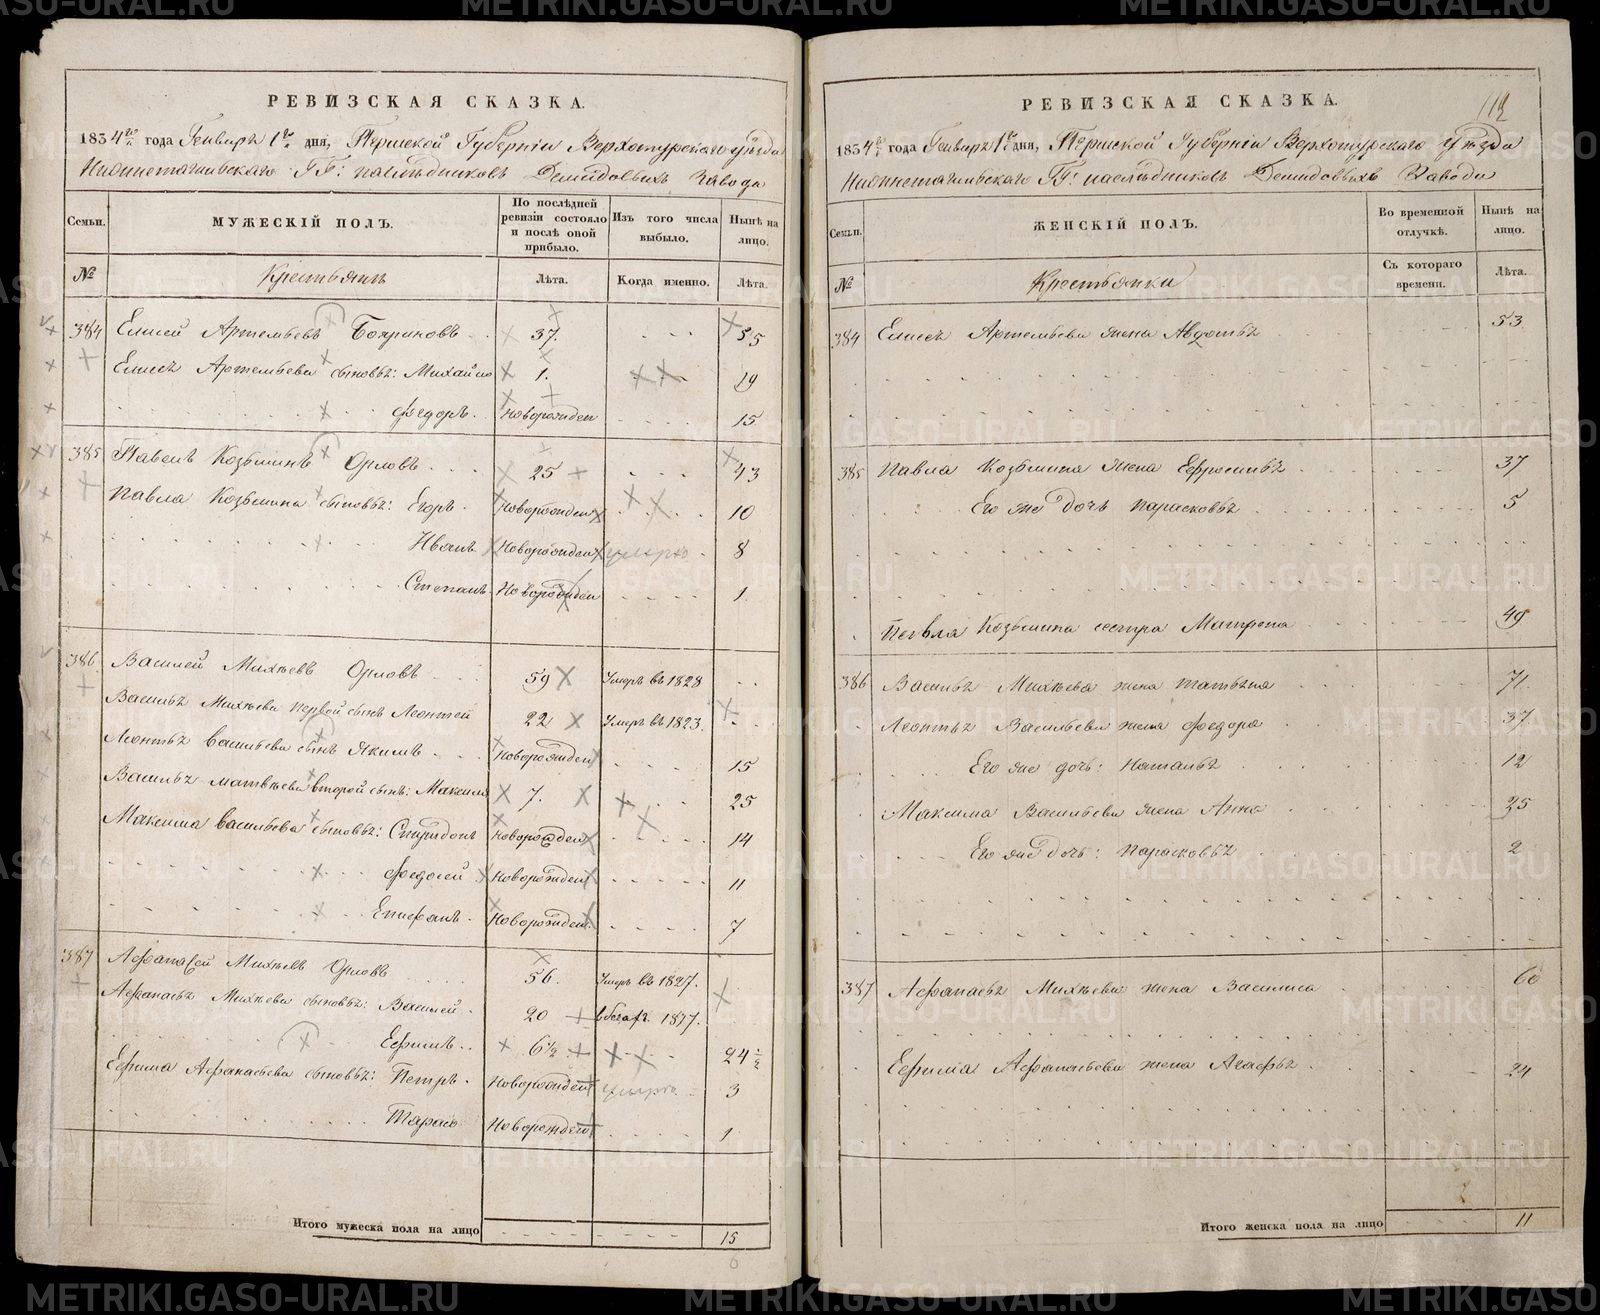 РЕВИЗСКАЯ СКАЗКА.
1834 го года Генваря 1 го дня, Пермской Губерніи Верхотурскаго уѣзда
Нижнетагильскаго ГГ: наслѣдниковъ Демидовыхъ Завода
Семьи. МУЖЕСКІЙ ПОЛЪ. По послѣдней ревизіи состояло и послѣ оной прибыло. Изъ того числа выбыло. Нынѣ на лицо.
№ Крестьянъ Лѣта. Когда именно. Лѣта.
384 Елисей Артемьевъ Бояриновъ 37. 55
Елисея Артемьева сыновья: Михайло 1. 19
Федоръ. Новорожден 15
385 Павелъ Козьминъ Орловъ 25 43
Павла Козьмина сыновья: Егоръ. Новорожден 10
Иванъ. Новорожден умерло 8
Степанъ. Новорожден 1.
386 Василей Михѣевъ Орловъ 59 Умеръ въ 1828
Василья Михѣева первой сынъ Леонтей 22 Умеръ въ 1823.
Леонтья Васильева сынъ Якимъ. Новорожден 15
Василья Матвѣева второй сынъ: Максимъ 7. 25
Максима Васильева сыновья: Спиридонъ Новорожден 14
Федосей Новорожден 11
Епифанъ. Новорожден. 7
387 Афанасей Михѣевъ Орловъ 56. Умеръ въ 1827.
Афанасья Михѣева сыновья: Василей. 20
Ефимъ. 6½ 24½
Ефима Афанасьева сыновья: Петръ. Новорожден 3
Тарасъ Новорожден 1.
Итого мужеска пола на лицо 15
112
РЕВИЗСКАЯ СКАЗКА.
1834 го года Генваря 1 го дня, Пермской Губерніи Верхотурскаго уѣзда
Нижнетагильскаго ГГ: наслѣдниковъ Демидовыхъ Завода
Семьи. ЖЕНСКІЙ ПОЛЪ. Во временной отлучкѣ. Нынѣ на лицо.
№ Крестьянки Съ котораго времени. Лѣта.
384 Елисея Артемьева жена Авдотья 53
385 Павла Козьмина жена Ефросинья 37
Его же дочь Парасковья 5
Павла Козьмина сестра Матрена 49
386 Василья Михѣева жена Татьяна 71.
Леонтья Васильева жена Федора 37
Его же дочь: Наталья 12
Максима Васильева жена Анна 25
Его же дочь: Парасковья 2
387 Афанасья Михѣева жена Василиса 60
Ефима Афанасьева жена Агафья 24
Итого женска пола на лицо 11
METRIKI.GASO-URAL.RU